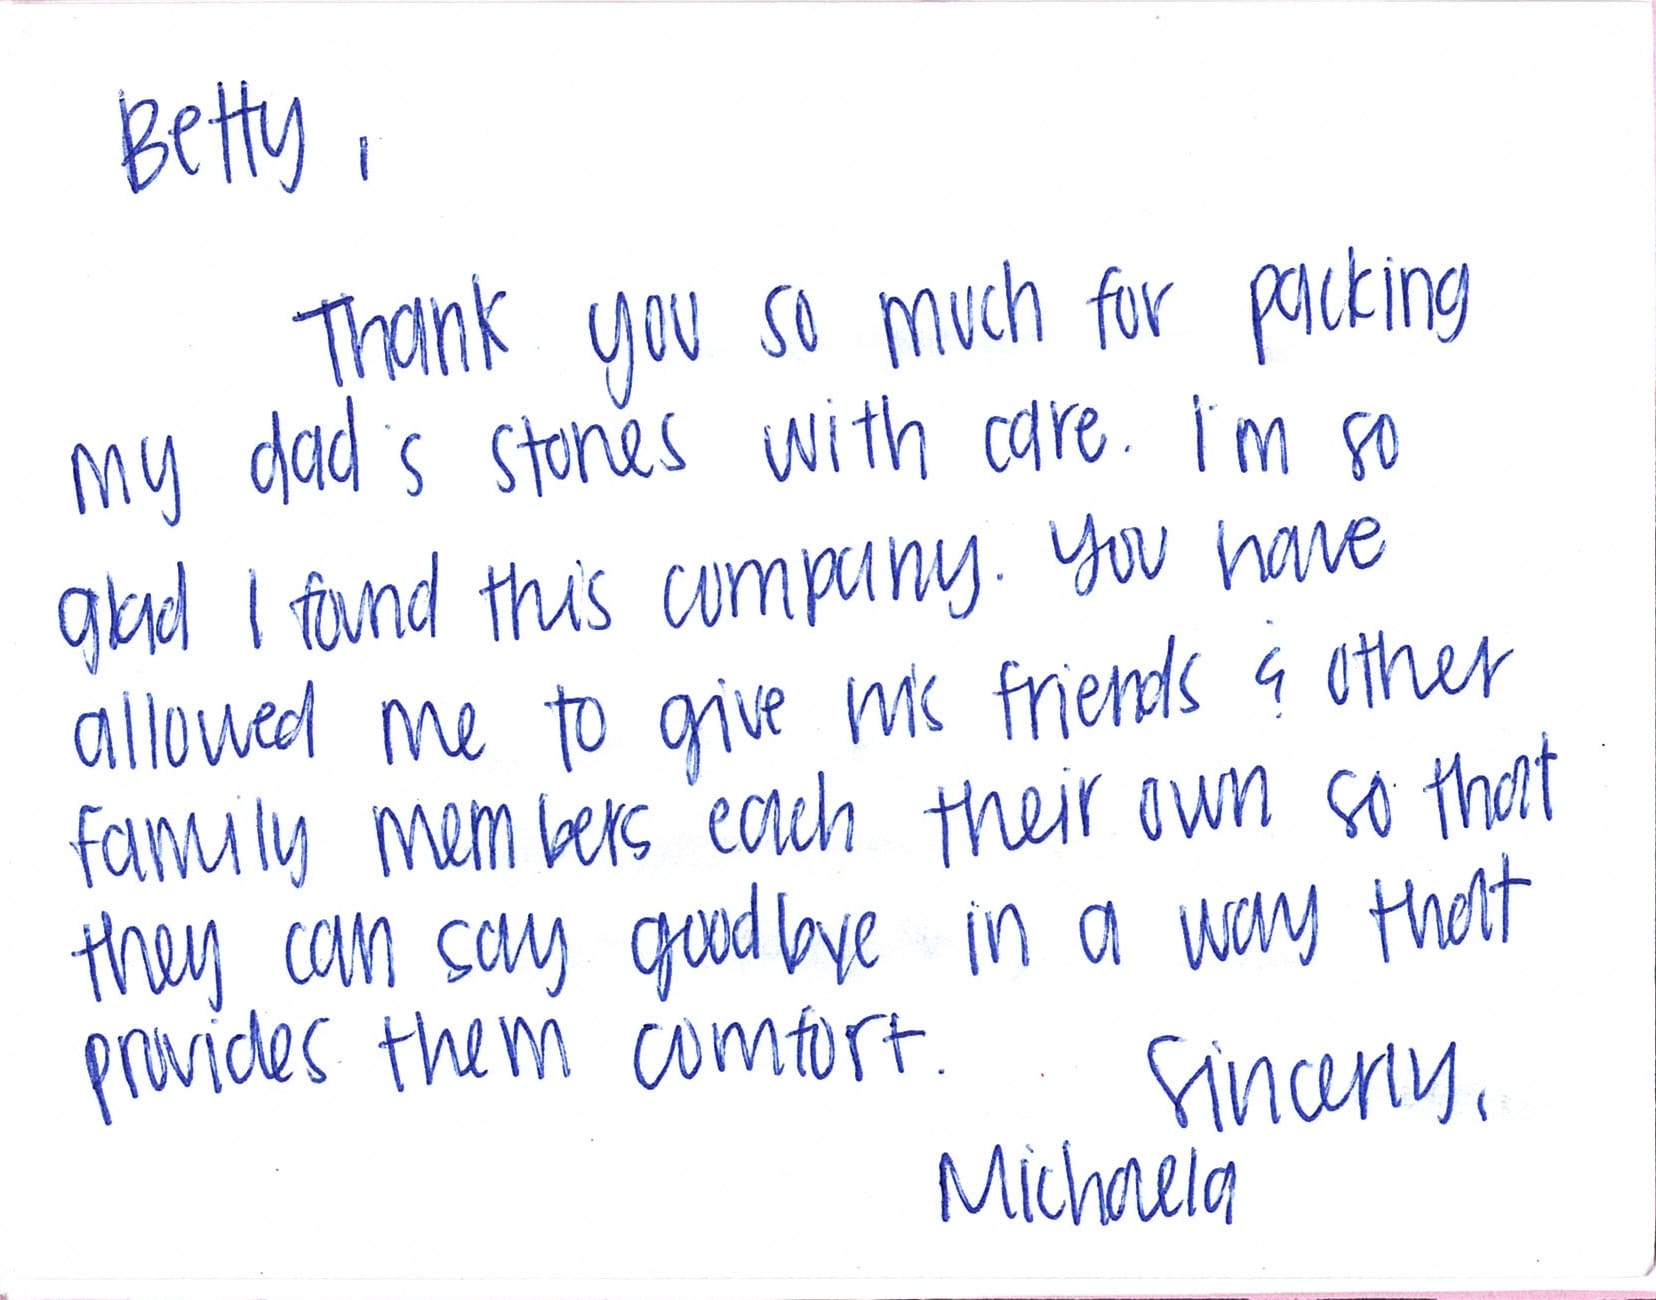 Betty,
Thank you so much for packing
my dad's stones with care. I'm so
glad I found this company. You have
allowed me to give his friends & other
family members each their own so that
they can say goodbye in a way that
provides them comfort.
Sincerly,
Michaela